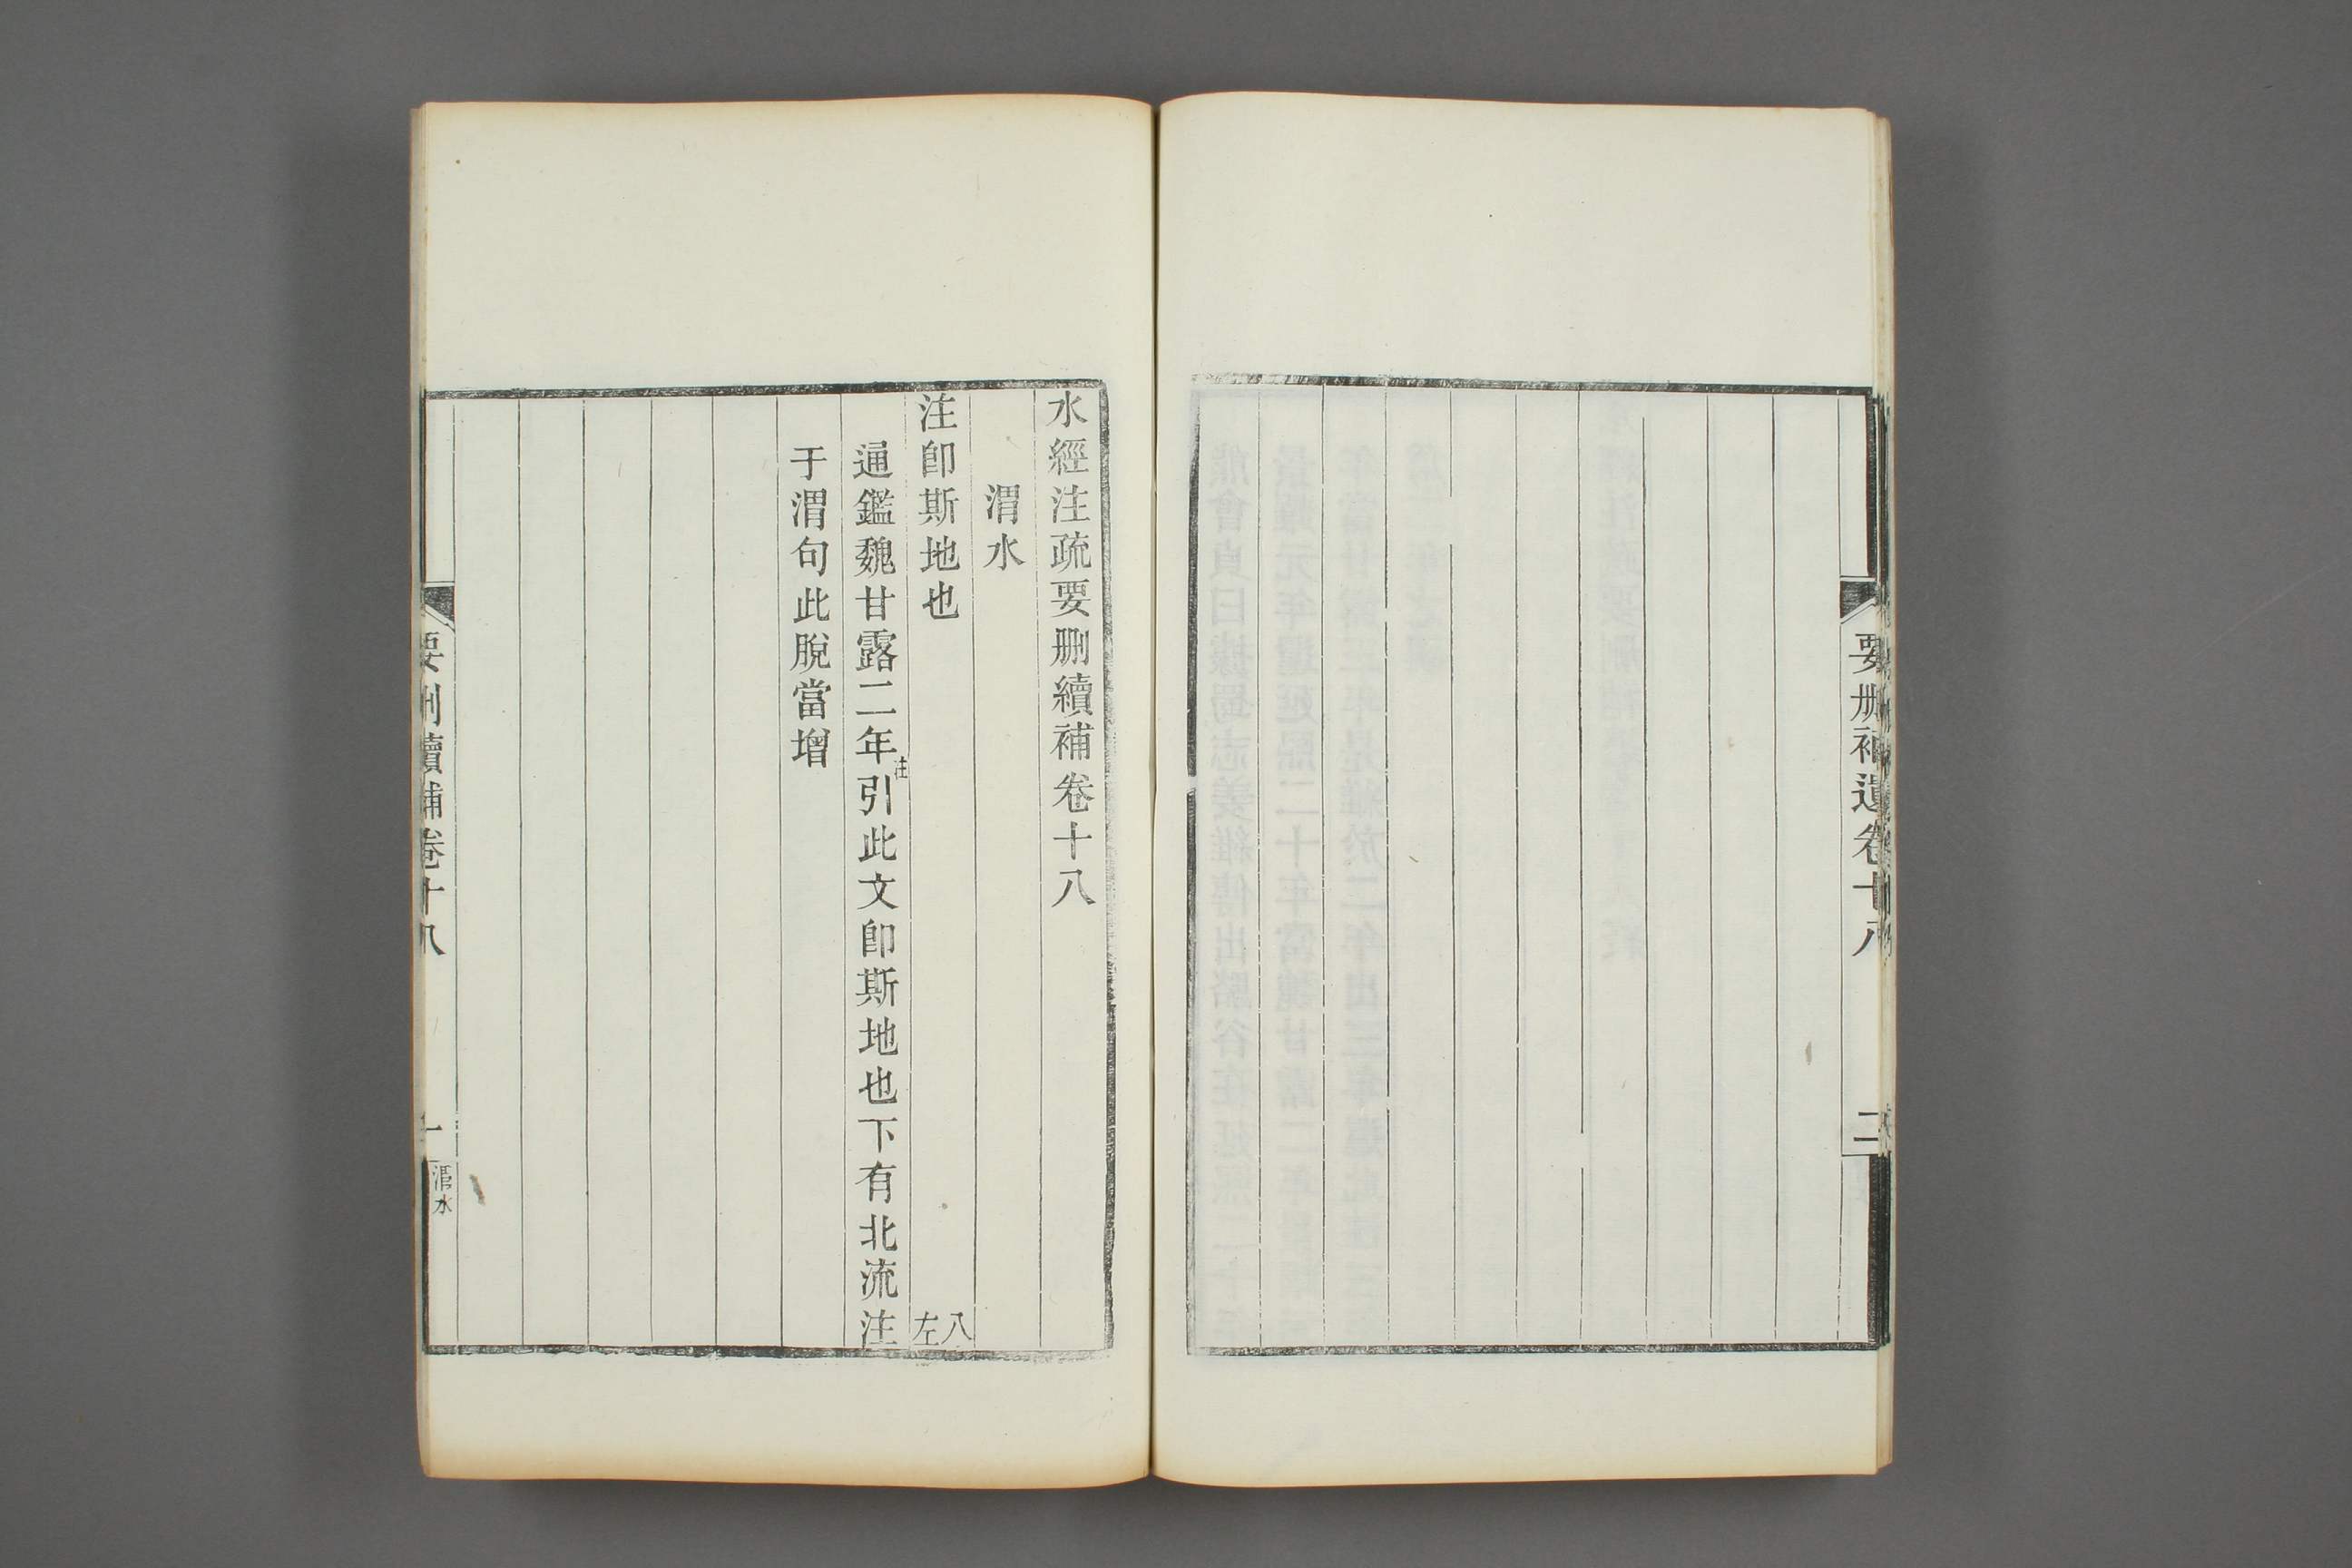 要删補遺卷十八
二
水經注疏要删續補卷十八
渭水
注卽斯地也 八左
通鑑魏甘露二年注引此文卽斯地也下有北流注
于渭句此脫當增
要删續補卷十八
一
渭水